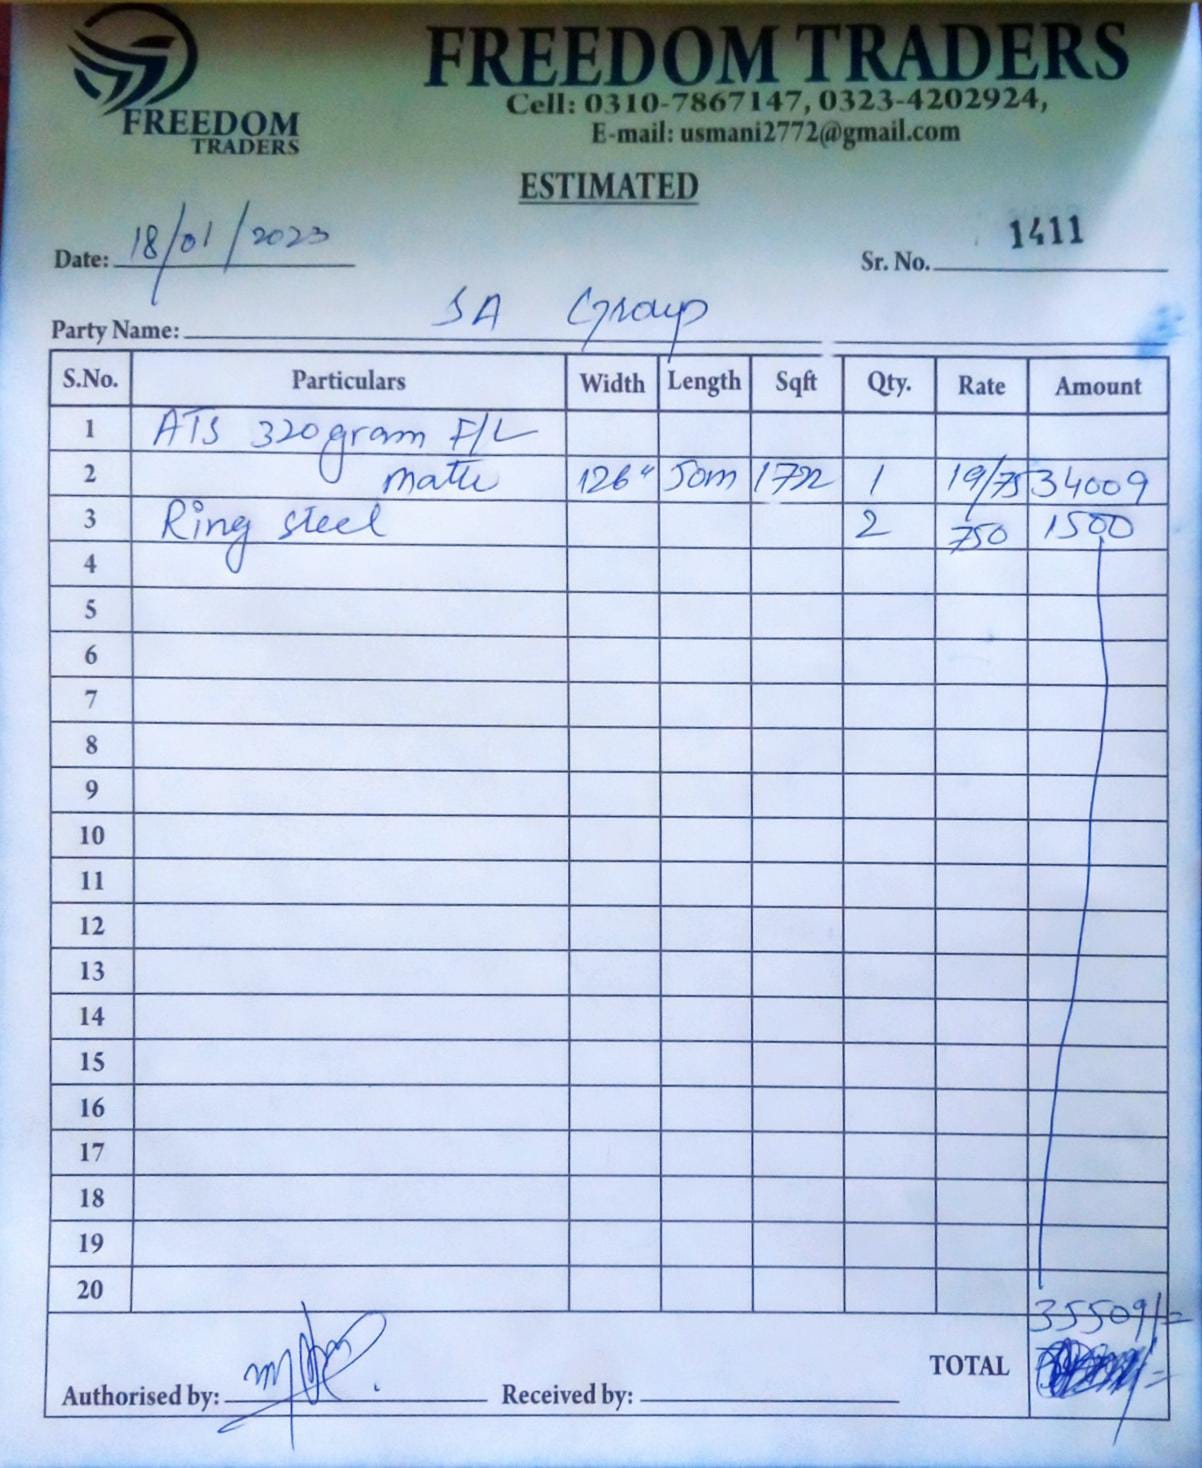 FREEDOM
TRADERS
FREEDOM TRADERS
Cell: 0310-7867147, 0323-4202924,
E-mail: usmani2772@gmail.com
ESTIMATED
Date: 18/01/2023
Sr. No. 1411
Party Name: SA Group
S.No. Particulars Width Length Sqft Qty. Rate Amount
1 ATS 320gram F/L
2 matte 126" 50m 1722 1 19/75 34009
3 Ring steel 2 750 1500
4
5
6
7
8
9
10
11
12
13
14
15
16
17
18
19
20
35509/=
TOTAL
Authorised by: Received by: